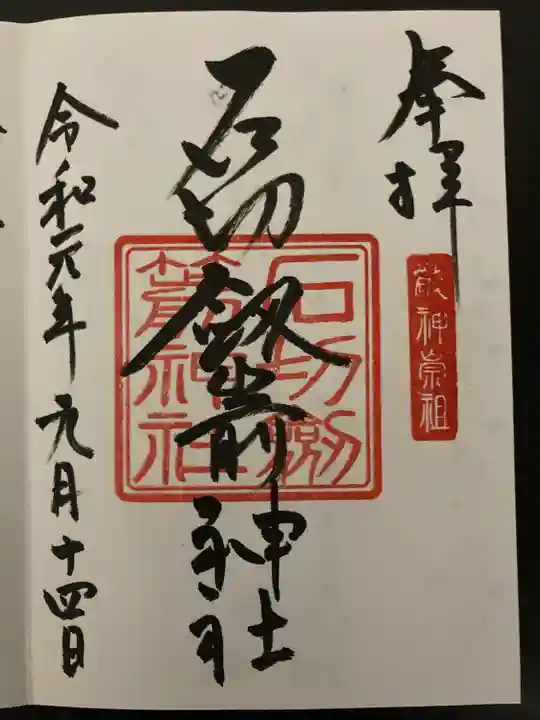 奉拝
敬神崇祖
石切劔箭神社
石切劔箭神社
令和元年元月十四日